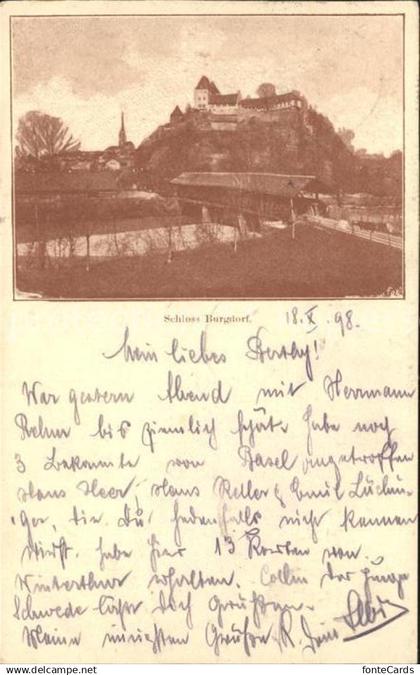 Schloss Burgdorf.
18. X. 98.
Mein liebes Berthy!
War gestern Abend mit Herrmann
bis ziemlich spät. habe noch
3 Bekannte von Basel angetroffen
Hans Heer, Hans Keller & Emil
die Du jedenfalls nicht kennen
wirst. habe hier 13 Karten von
Winterthur erhalten. Collin der junge
Schwede läßt Dich Grüßen.
Meine innigsten Grüße
fonteCards
www.fonteCards.com